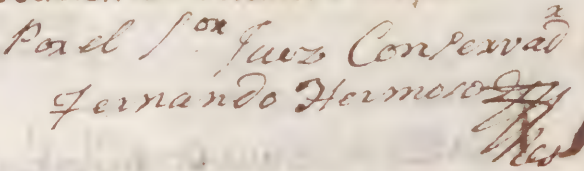 Por el Sor Juez Conservadr
Fernando Hermoso